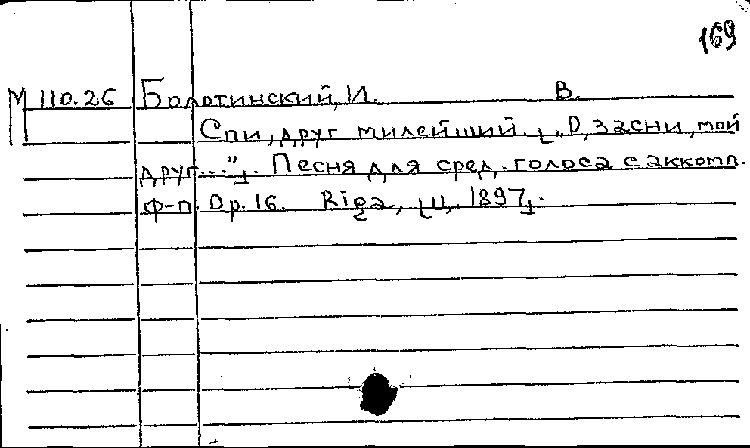 169
М 110.26 Болотинский, И. В.
Спи, друг милейший. [„О, засни, мой
друг..."]. Песня для сред. голоса с аккомп.
ф-п. Op. 16. Riga, [ц. 1897].